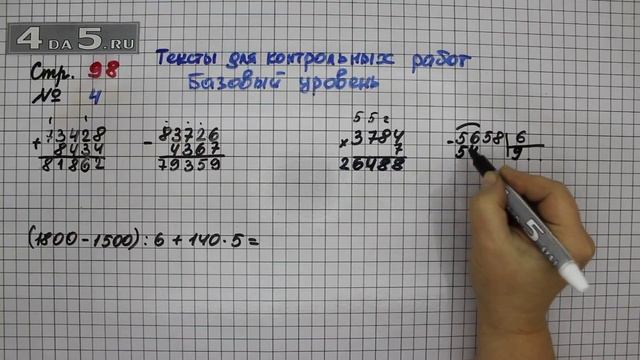 4 DA 5.RU
Тексты для контрольных работ
Базовый уровень
Стр. 98
№ 4
1 1
+ 73428
8434
81862
83726
- 4367
79359
5 5 2
× 3784
7
26488
- 5658 | 6
54 | 9
(1800 - 1500) : 6 + 140 · 5 =